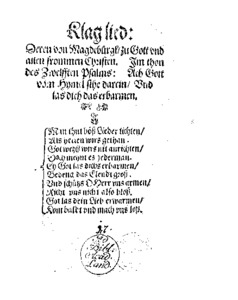 Klaglied:
Deren von Magdeburgk/ zu Gott vnd
allen frommen Christen. Im thon
des Zwelfften Psalms: Ach Gott
von Hymel sihe darein/ Vnd
las dich das erbarmen.
Mein thut böß Lieder tichten/
Als
Gott wolt wirs nit anrichten/
jederman.
Ey Got las dichs erbarmen/
Bedenck das Elendt groß.
Vnd schütz O Herr vns armen/
vns nicht also bloß.
Got las dein Lieb erwarmen/
Kom baldt vnd mach vns loß.